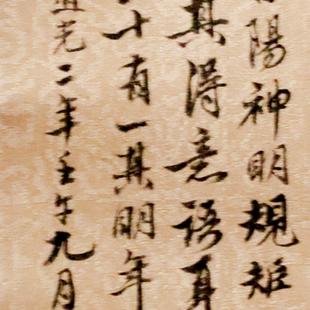 陽神明規矩
其得意語真
十有一其明年
道光二年壬午九月